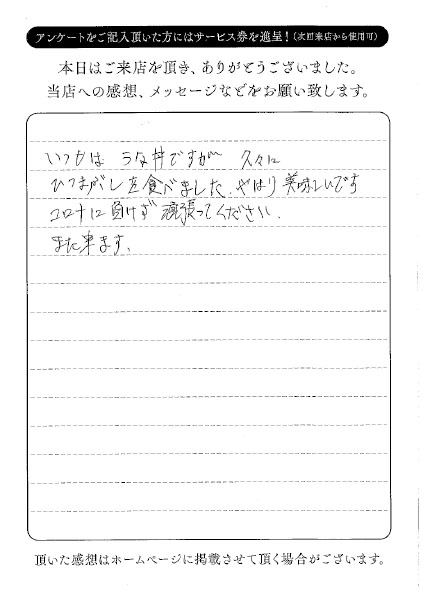 アンケートをご記入頂いた方にはサービス券を進呈！(次回来店から使用可)
本日はご来店を頂き、ありがとうございました。
当店への感想、メッセージなどをお願い致します。
いつもは うな丼ですが 久々に
ひつまぶしを食べました。やはり美味しいです
コロナに負けず頑張ってください。
また来ます。
頂いた感想はホームページに掲載させて頂く場合がございます。